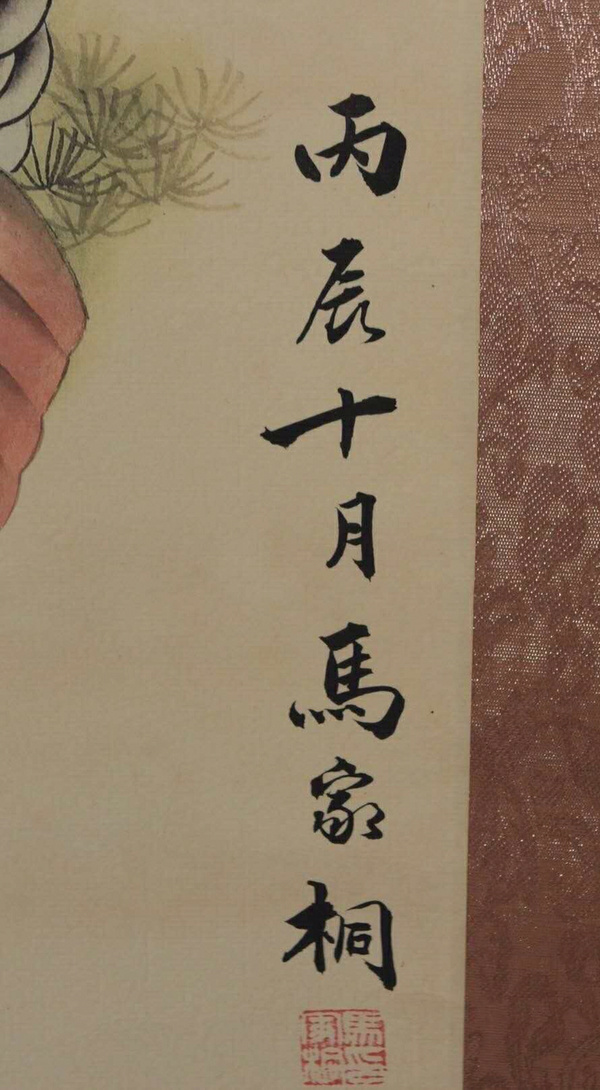 丙辰十月馬家桐